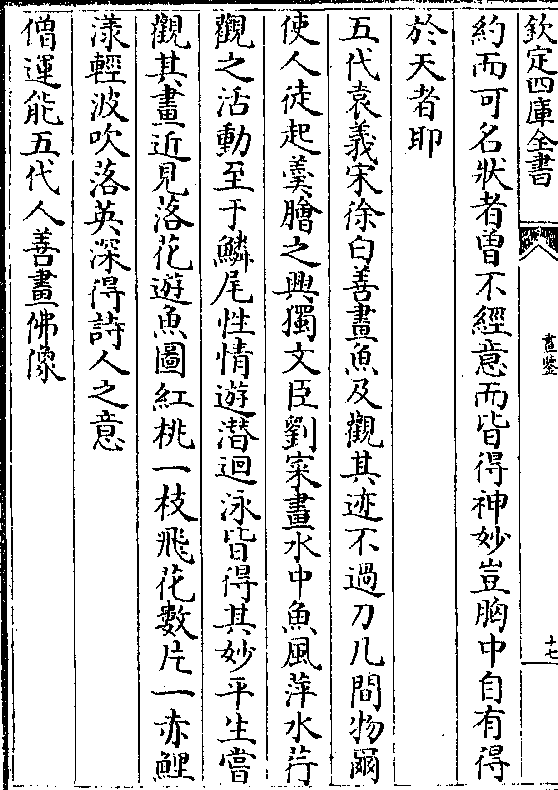 欽定四庫全書
畫鑒
十七
約而可名狀者曽不經意而皆得神妙豈胸中自有得
於天者耶
五代袁義宋徐白善畫魚及觀其迹不過刀几間物爾
使人徒起羮膾之興獨文臣劉寀畫水中魚風萍水荇
觀之活動至于鱗尾性情遊潛迴泳皆得其妙平生嘗
觀其畫近見落花遊魚圖紅桃一枝飛花數片一赤鯉
漾輕波吹落英深得詩人之意
僧運能五代人善畫佛像